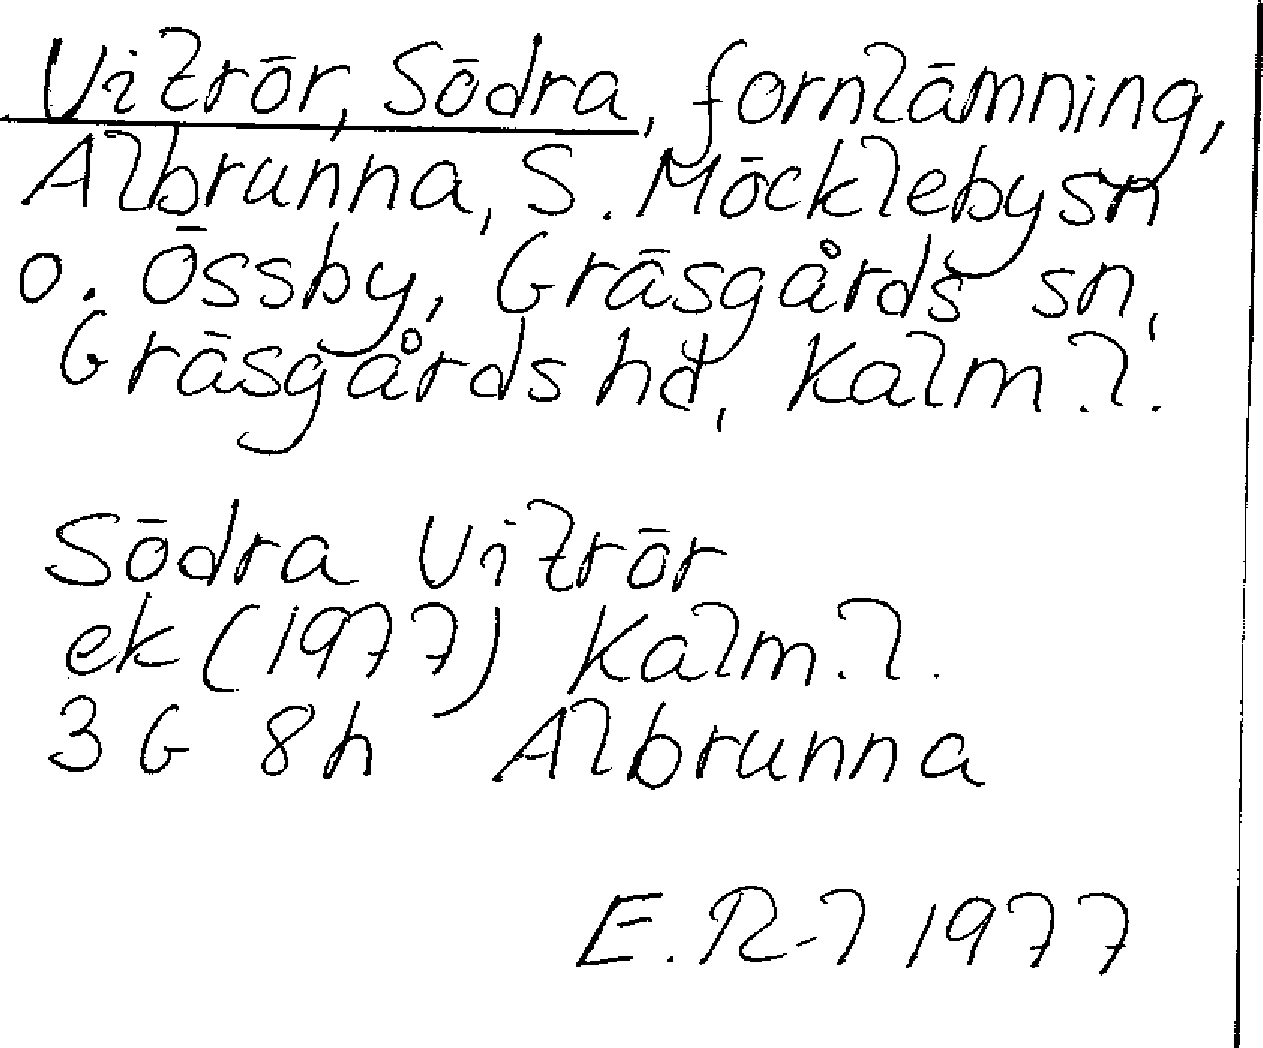 Vitrör, Södra, fornlämning,
Albrunna, S. Möckleby sn
o. Össby, Gräsgårds sn,
Gräsgårds hd, Kalm. l.
Södra Vitrör
ek (1977) Kalm. l.
3 G 8h Albrunna
E. R-l 1977